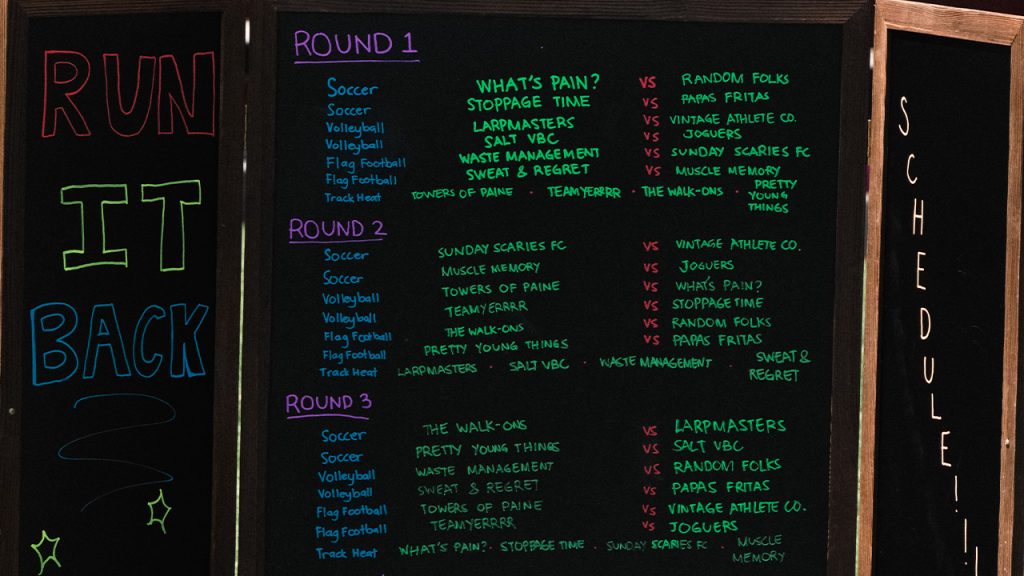 RUN
IT
BACK
ROUND 1
Soccer WHAT'S PAIN? VS RANDOM FOLKS
Soccer STOPPAGE TIME VS PAPAS FRITAS
Volleyball LARPMASTERS VS VINTAGE ATHLETE CO.
Volleyball SALT VBC VS JOGUERS
Flag Football WASTE MANAGEMENT VS SUNDAY SCARIES FC
Flag Football SWEAT & REGRET VS MUSCLE MEMORY
Track Heat TOWERS OF PAINE · TEAMYERRRR · THE WALK-ONS · PRETTY
YOUNG
THINGS
ROUND 2
Soccer SUNDAY SCARIES FC VS VINTAGE ATHLETE CO.
Soccer MUSCLE MEMORY VS JOGUERS
Volleyball TOWERS OF PAINE VS WHAT'S PAIN?
Volleyball TEAMYERRRR VS STOPPAGE TIME
Flag Football THE WALK-ONS VS RANDOM FOLKS
Flag Football PRETTY YOUNG THINGS VS PAPAS FRITAS
Track Heat LARPMASTERS · SALT VBC · WASTE MANAGEMENT · SWEAT &
REGRET
ROUND 3
Soccer THE WALK-ONS VS LARPMASTERS
Soccer PRETTY YOUNG THINGS VS SALT VBC
Volleyball WASTE MANAGEMENT VS RANDOM FOLKS
Volleyball SWEAT & REGRET VS PAPAS FRITAS
Flag Football TOWERS OF PAINE VS VINTAGE ATHLETE CO.
Flag Football TEAMYERRRR VS JOGUERS
Track Heat WHAT'S PAIN? · STOPPAGE TIME · SUNDAY SCARIES FC · MUSCLE
MEMORY
SCHEDULE!!!!